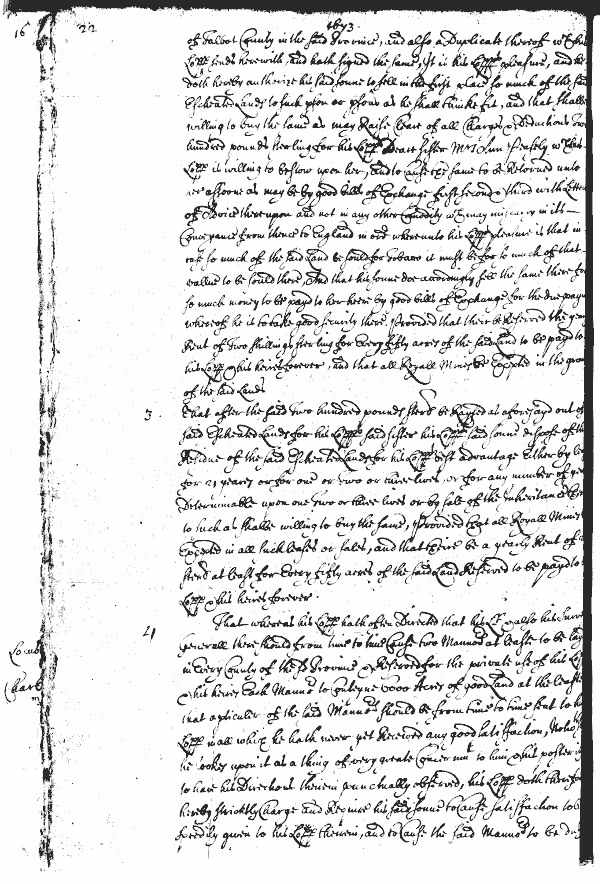 1673
16 22
of Talbot County in the said Province, and also a Duplicate thereof wch his
Lopp sends herewith, and hath signed the same, It is his Lopps pleasure, and he
doth hereby authorize his said sonne to sell in the first place so much of the said
Escheated Lands to such pson or psons as he shall thinke fit, and that shalbe
willing to buy the same as may Raise Cleare of all Charges & Deductions Two
hundred pounds sterling for his Lopps Deare sister
Lopp is willing to bestow upon her, and to cause the same to be Returned unto
her assoone as may be by good bills of Exchange first second & third with Letters
of Advice thereupon and not in any other Comodity wch may miscarry in its
Conveyance from thence to England in ord whereunto his Lopps pleasure is that in
case so much of the said Land be sould for Tobacco it must be for so much of that
vallue to be sould there, And that his sonne doe accordingly sell the same there for
so much money to be payd to her heere by good bills of Exchange for the due paymt
whereof he is to take good security there. Provided that there be Reserved the yearly
Rent of Two shillings sterling for Every fifty acres of the said Land to be payd to
his Lopp & his heires forever, and that all Royall Mines be Excepted in the grants
of the said Lands
3. That after the said Two hundred pounds sterl be Raysed as aforesayd out of
said Escheated Lands for his Lopps said sister his Lopps said sonne dispose of the
Residue of the said Escheated Lands for his Lopps best advantage Either by lease
for 21 years or for one or Two or three lives or for any number of years
Determinable upon one Two or three lives or by sale of the Inheritance thereof
to such as shalbe willing to buy the same, Provided that all Royall Mines be
Excepted in all such leases or sales, and that there be a yearly Rent of
sterl at least for Every fifty acres of the said Land Reserved to be payd to
Lopp & his heires forever.
4 That whereas his Lopp hath often Directed that his Lt & also his Surveyr
generall there should from time to time Cause two Mannors at least to be layd
in Every County of the sd Province & Reserved for the private use of his Lopp
& his heires Each Mannor to Conteyne 6000 Acres of good Land at the least
that a pticuler of the said Mannors should be from time to time sent to his
Lopp in all which he hath never yet Received any good satisfaction,
he lookes upon it as a thing of very greate Concernmt to him & his posterity
to have his Directions therein punctually observed, his Lopp doth therefore
hereby strictly Charge and Require his said sonne to Cause satisfaction to be
speedily given to his Lopp therein, and to Cause the said Mannors to be duly